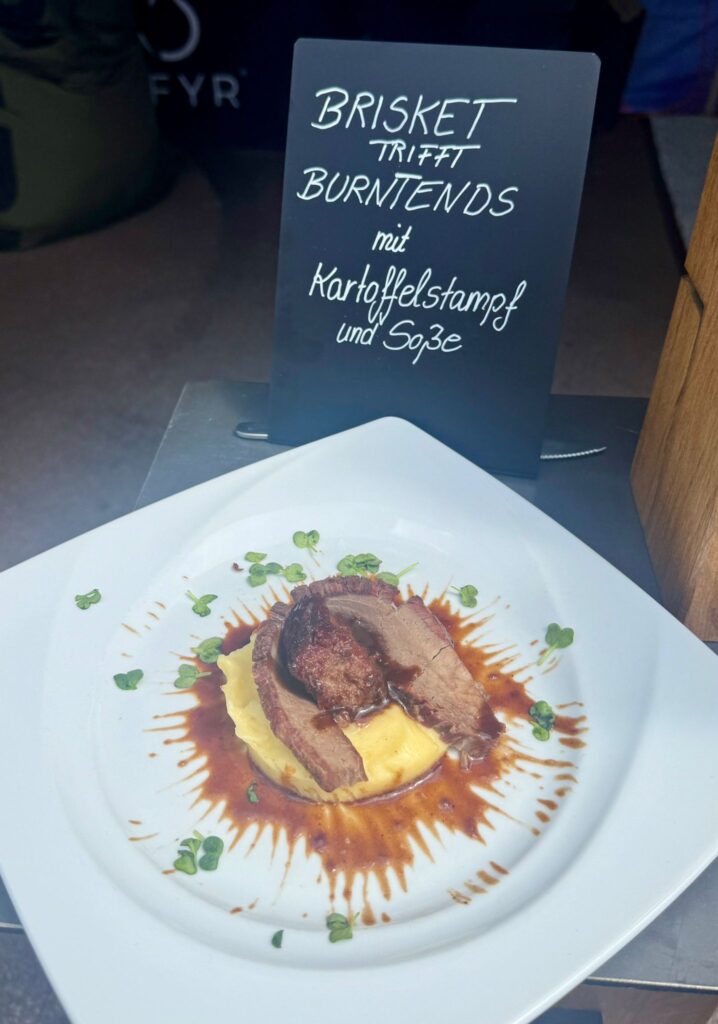 FYR
BRISKET
TRIFFT
BURNTENDS
mit
Kartoffelstampf
und Soße